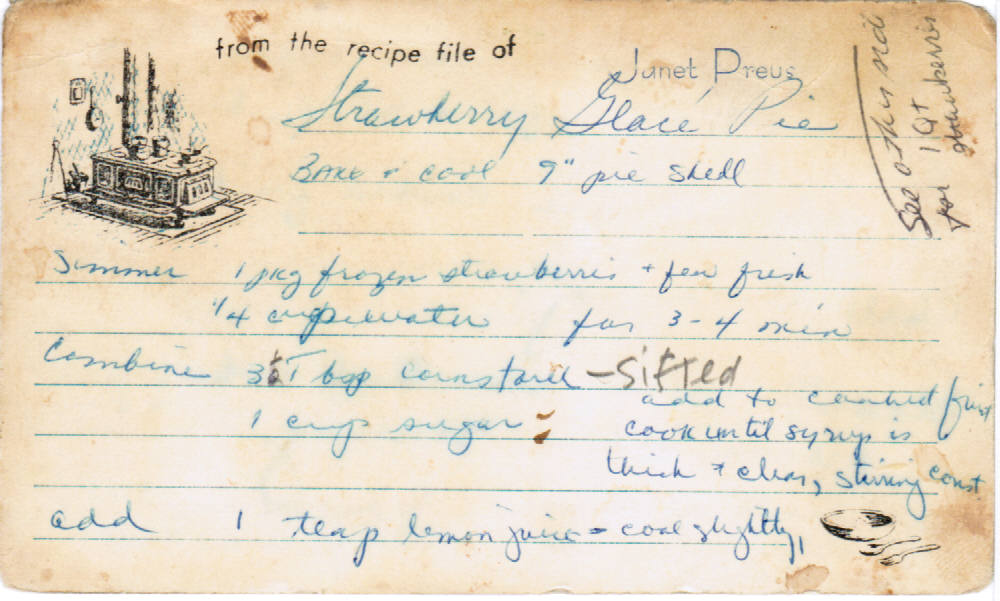 from the recipe file of
Janet Preus
Strawberry Glacé Pie
See other side
for 1 Qt
strawberries
Bake & cool 9" pie shell
Simmer 1 pkg frozen strawberries + few fresh
1/4 cup water for 3-4 min
Combine 3 T bsp cornstarch - Sifted
add to cooked fruit
1 cup sugar
cook until syrup is
thick & clear, stirring const
add 1 teasp lemon juice - cool slightly,